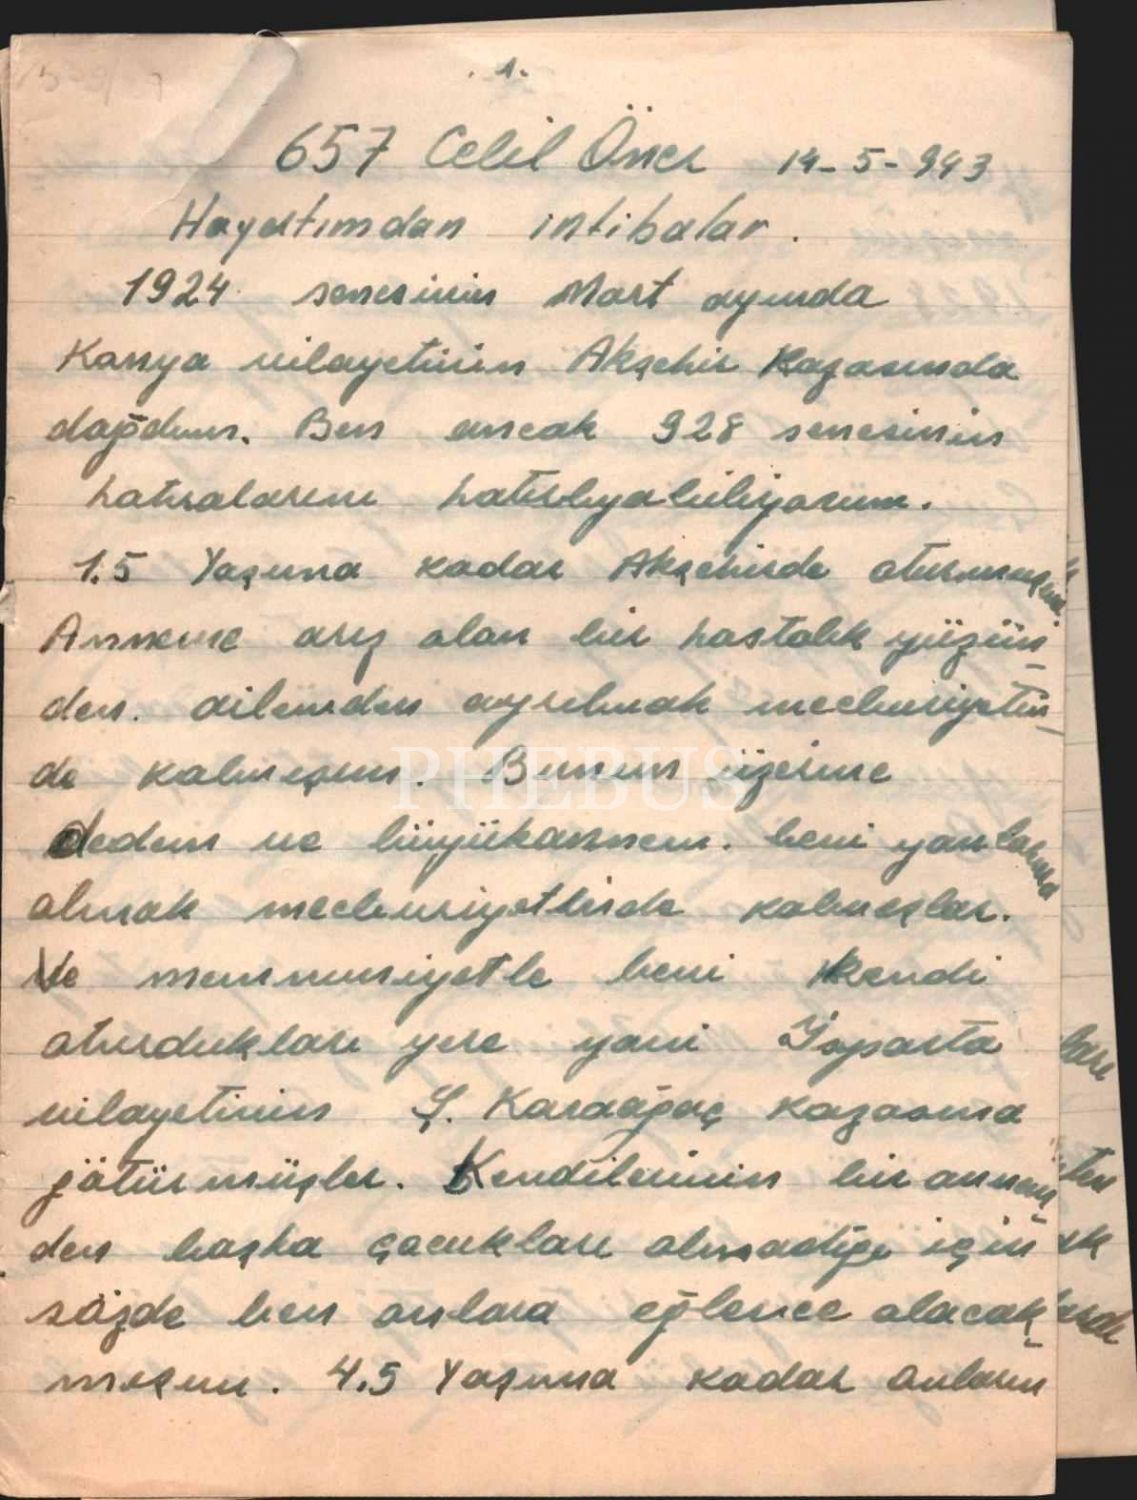 .1.
657 Celil Öner 14-5-943
Hayatımdan intibalar.
1924 senesinin Mart ayında
Konya vilayetinin Akşehir Kazasında
doğdum. Ben ancak 928 senesinin
hatıralarını hatırlıyabiliyorum.
1.5 Yaşıma kadar Akşehirde oturmuşum.
Anneme arız olan bir hastalık yüzün-
den. ailemden ayrılmak mecburiyetin-
de kalmışım. Bunun üzerine
dedem ve büyükannem. beni yanlarına
almak mecburiyetinde kalmışlar.
Ve memnuniyetle beni Kendi
oturdukları yere yani Isparta
vilayetinin Ş. Karaağaç kazasına
götürmüşler. Kendilerinin bir annem-
den başka çocukları olmadığı için
sözde ben onlara eğlence olacak-
mışım. 4.5 Yaşıma kadar onların
PHEBUS